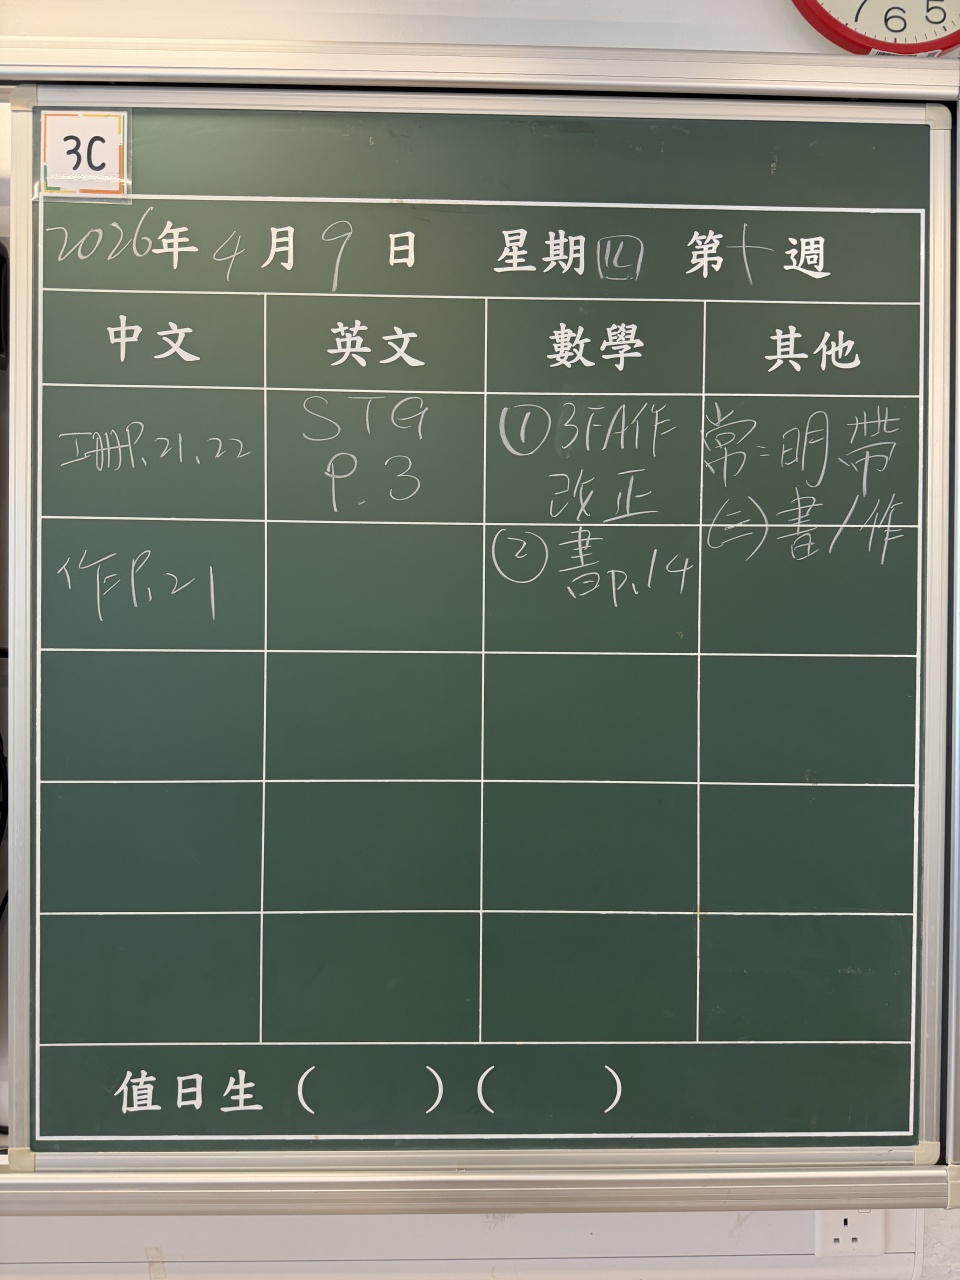 7 6 5
3C
2026年4月9日 星期四 第十週
中文 英文 數學 其他
工冊P.21、22
作P.21
STG
P.3
①3FA作
改正
②書p.14
常:明帶
(二)書/作
值日生( )( )